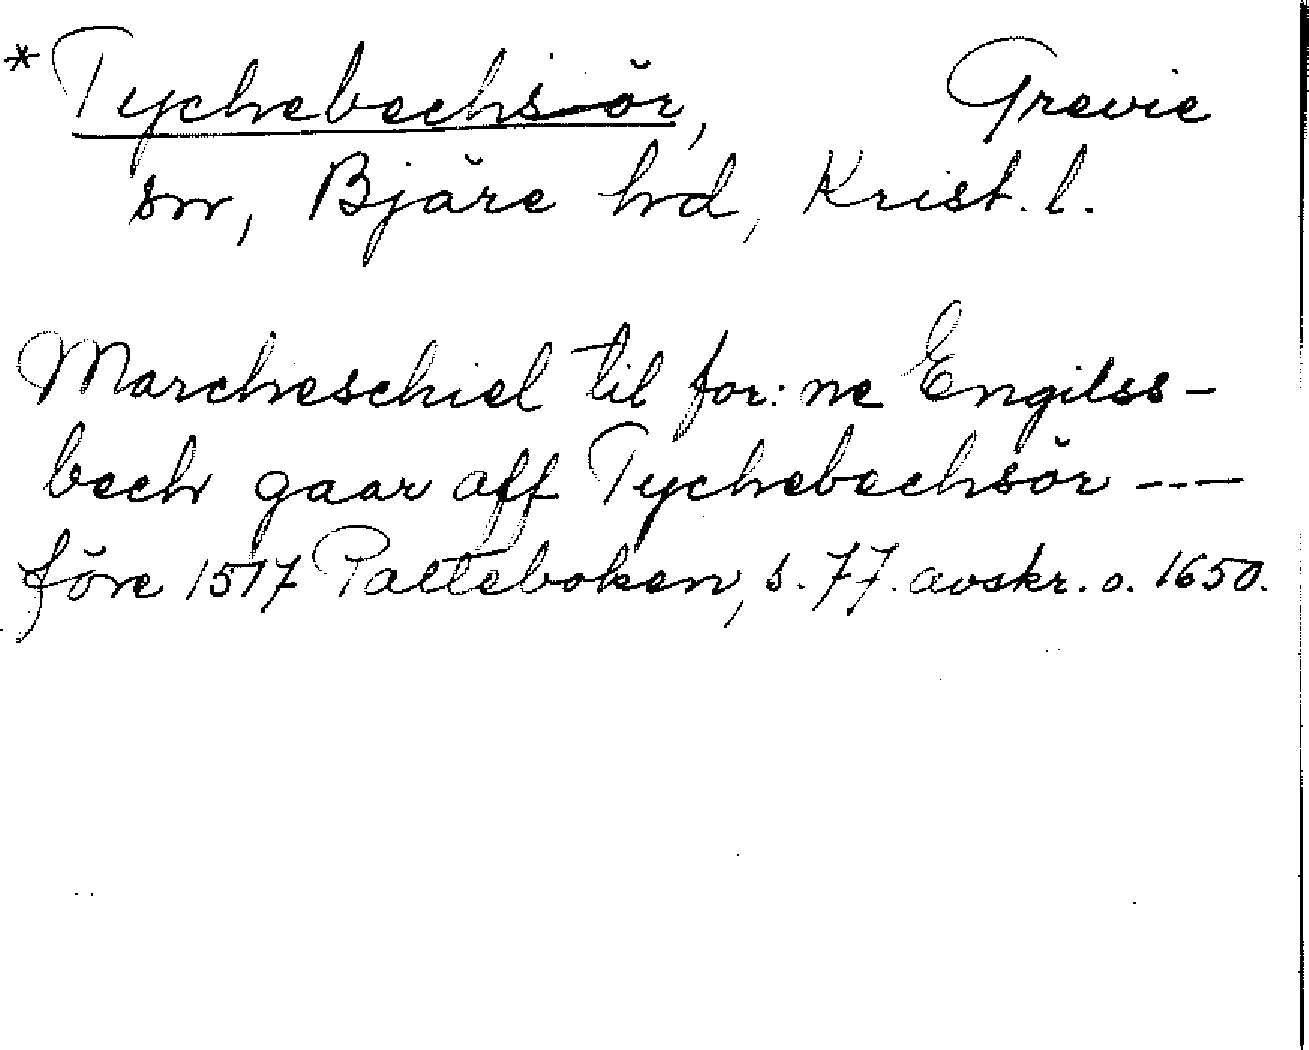 *Tychebechsör, Grevie
sn, Bjäre hd, Krist. l.
Marcheschiel til for: ne Engilss-
bech gaar aff Tychebechsör ---
före 1517 Palteboken, s. 77. avskr. o. 1650.